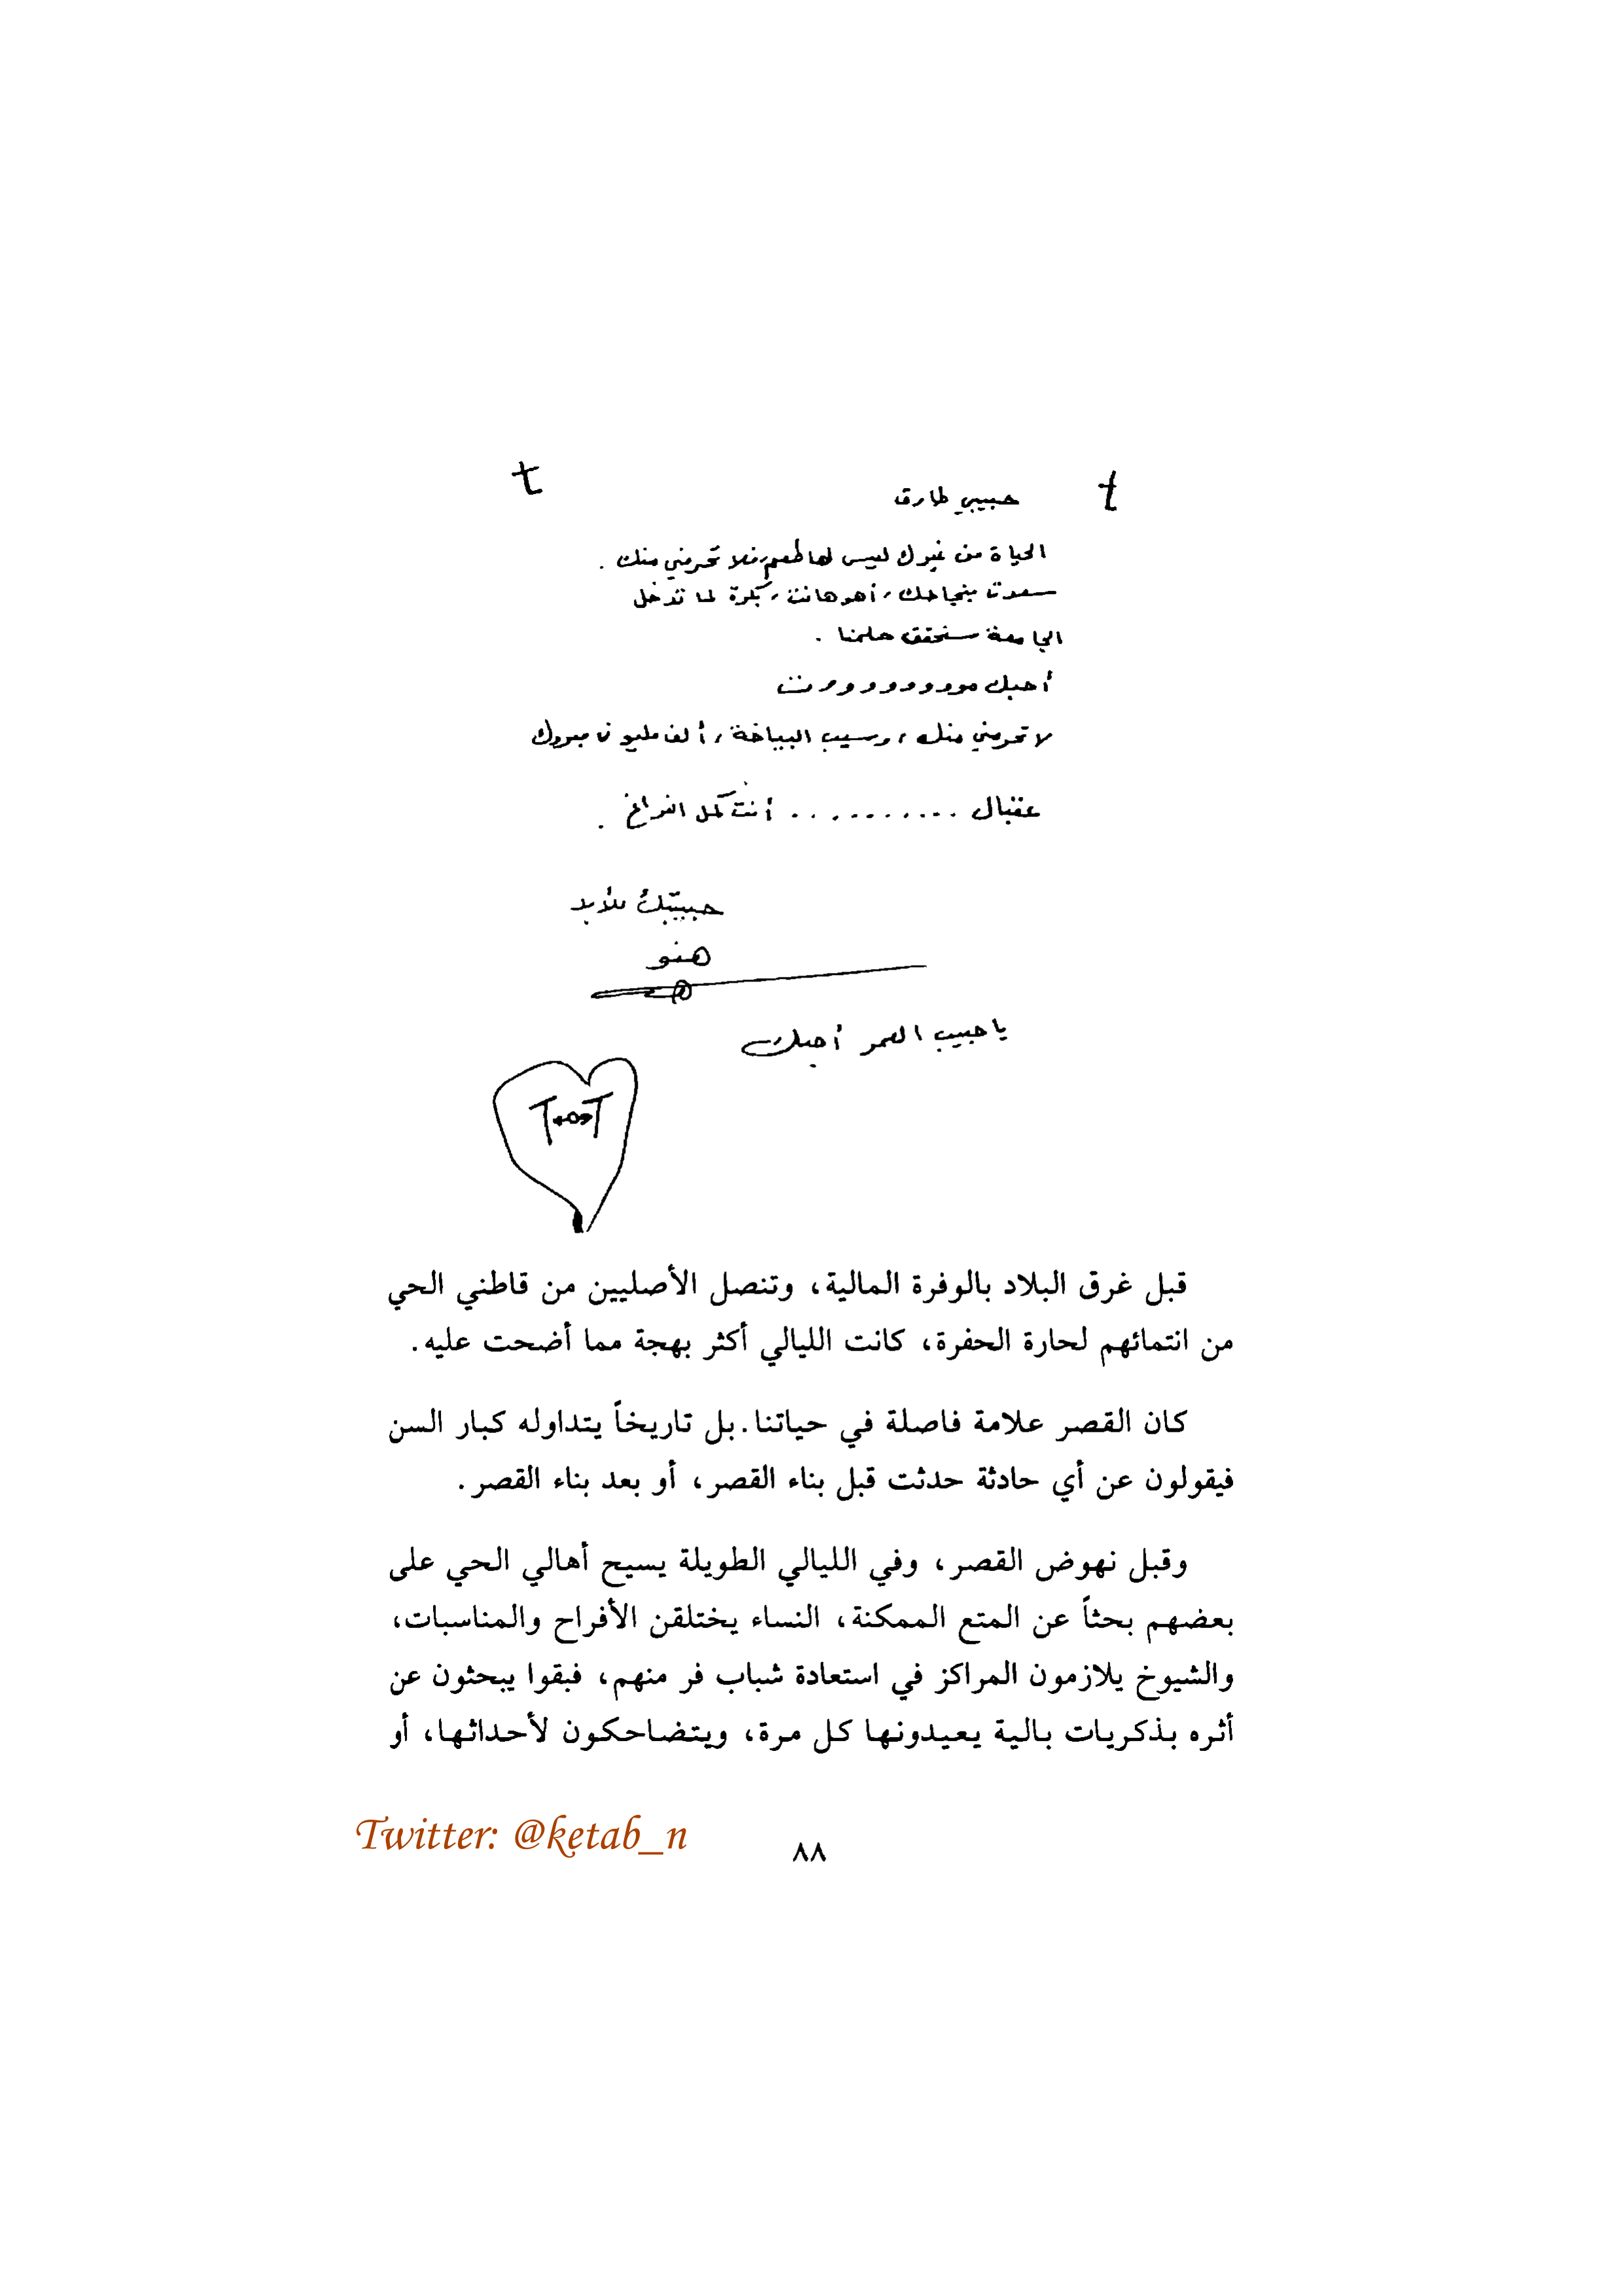 t حبيبي طارق t
الحياة من غيرك ليس لها طعم، فلا تحرمني منك .
سعدت بنجاحك، أهو هانت، بكرة لما تدخل
الجامعة سنحقق حلمنا .
أحبك موووووووت
لا تحرمني منك، وسيب البياخة، ألف مليون مبروك
عقبال .......... أنت كمل الفراغ .
حبيبتك للأبد
هنو
يا حبيب العمر أحبك
قبل غرق البلاد بالوفرة المالية، وتنصل الأصليين من قاطني الحي
من انتمائهم لحارة الحفرة، كانت الليالي أكثر بهجة مما أضحت عليه.
كان القصر علامة فاصلة في حياتنا. بل تاريخاً يتداوله كبار السن
فيقولون عن أي حادثة حدثت قبل بناء القصر، أو بعد بناء القصر.
وقبل نهوض القصر، وفي الليالي الطويلة يسيح أهالي الحي على
بعضهم بحثاً عن المتع الممكنة، النساء يختلقن الأفراح والمناسبات،
والشيوخ يلازمون المراكز في استعادة شباب فر منهم، فبقوا يبحثون عن
أثره بذكريات بالية يعيدونها كل مرة، ويتضاحكون لأحداثها، أو
Twitter: @ketab_n
٨٨